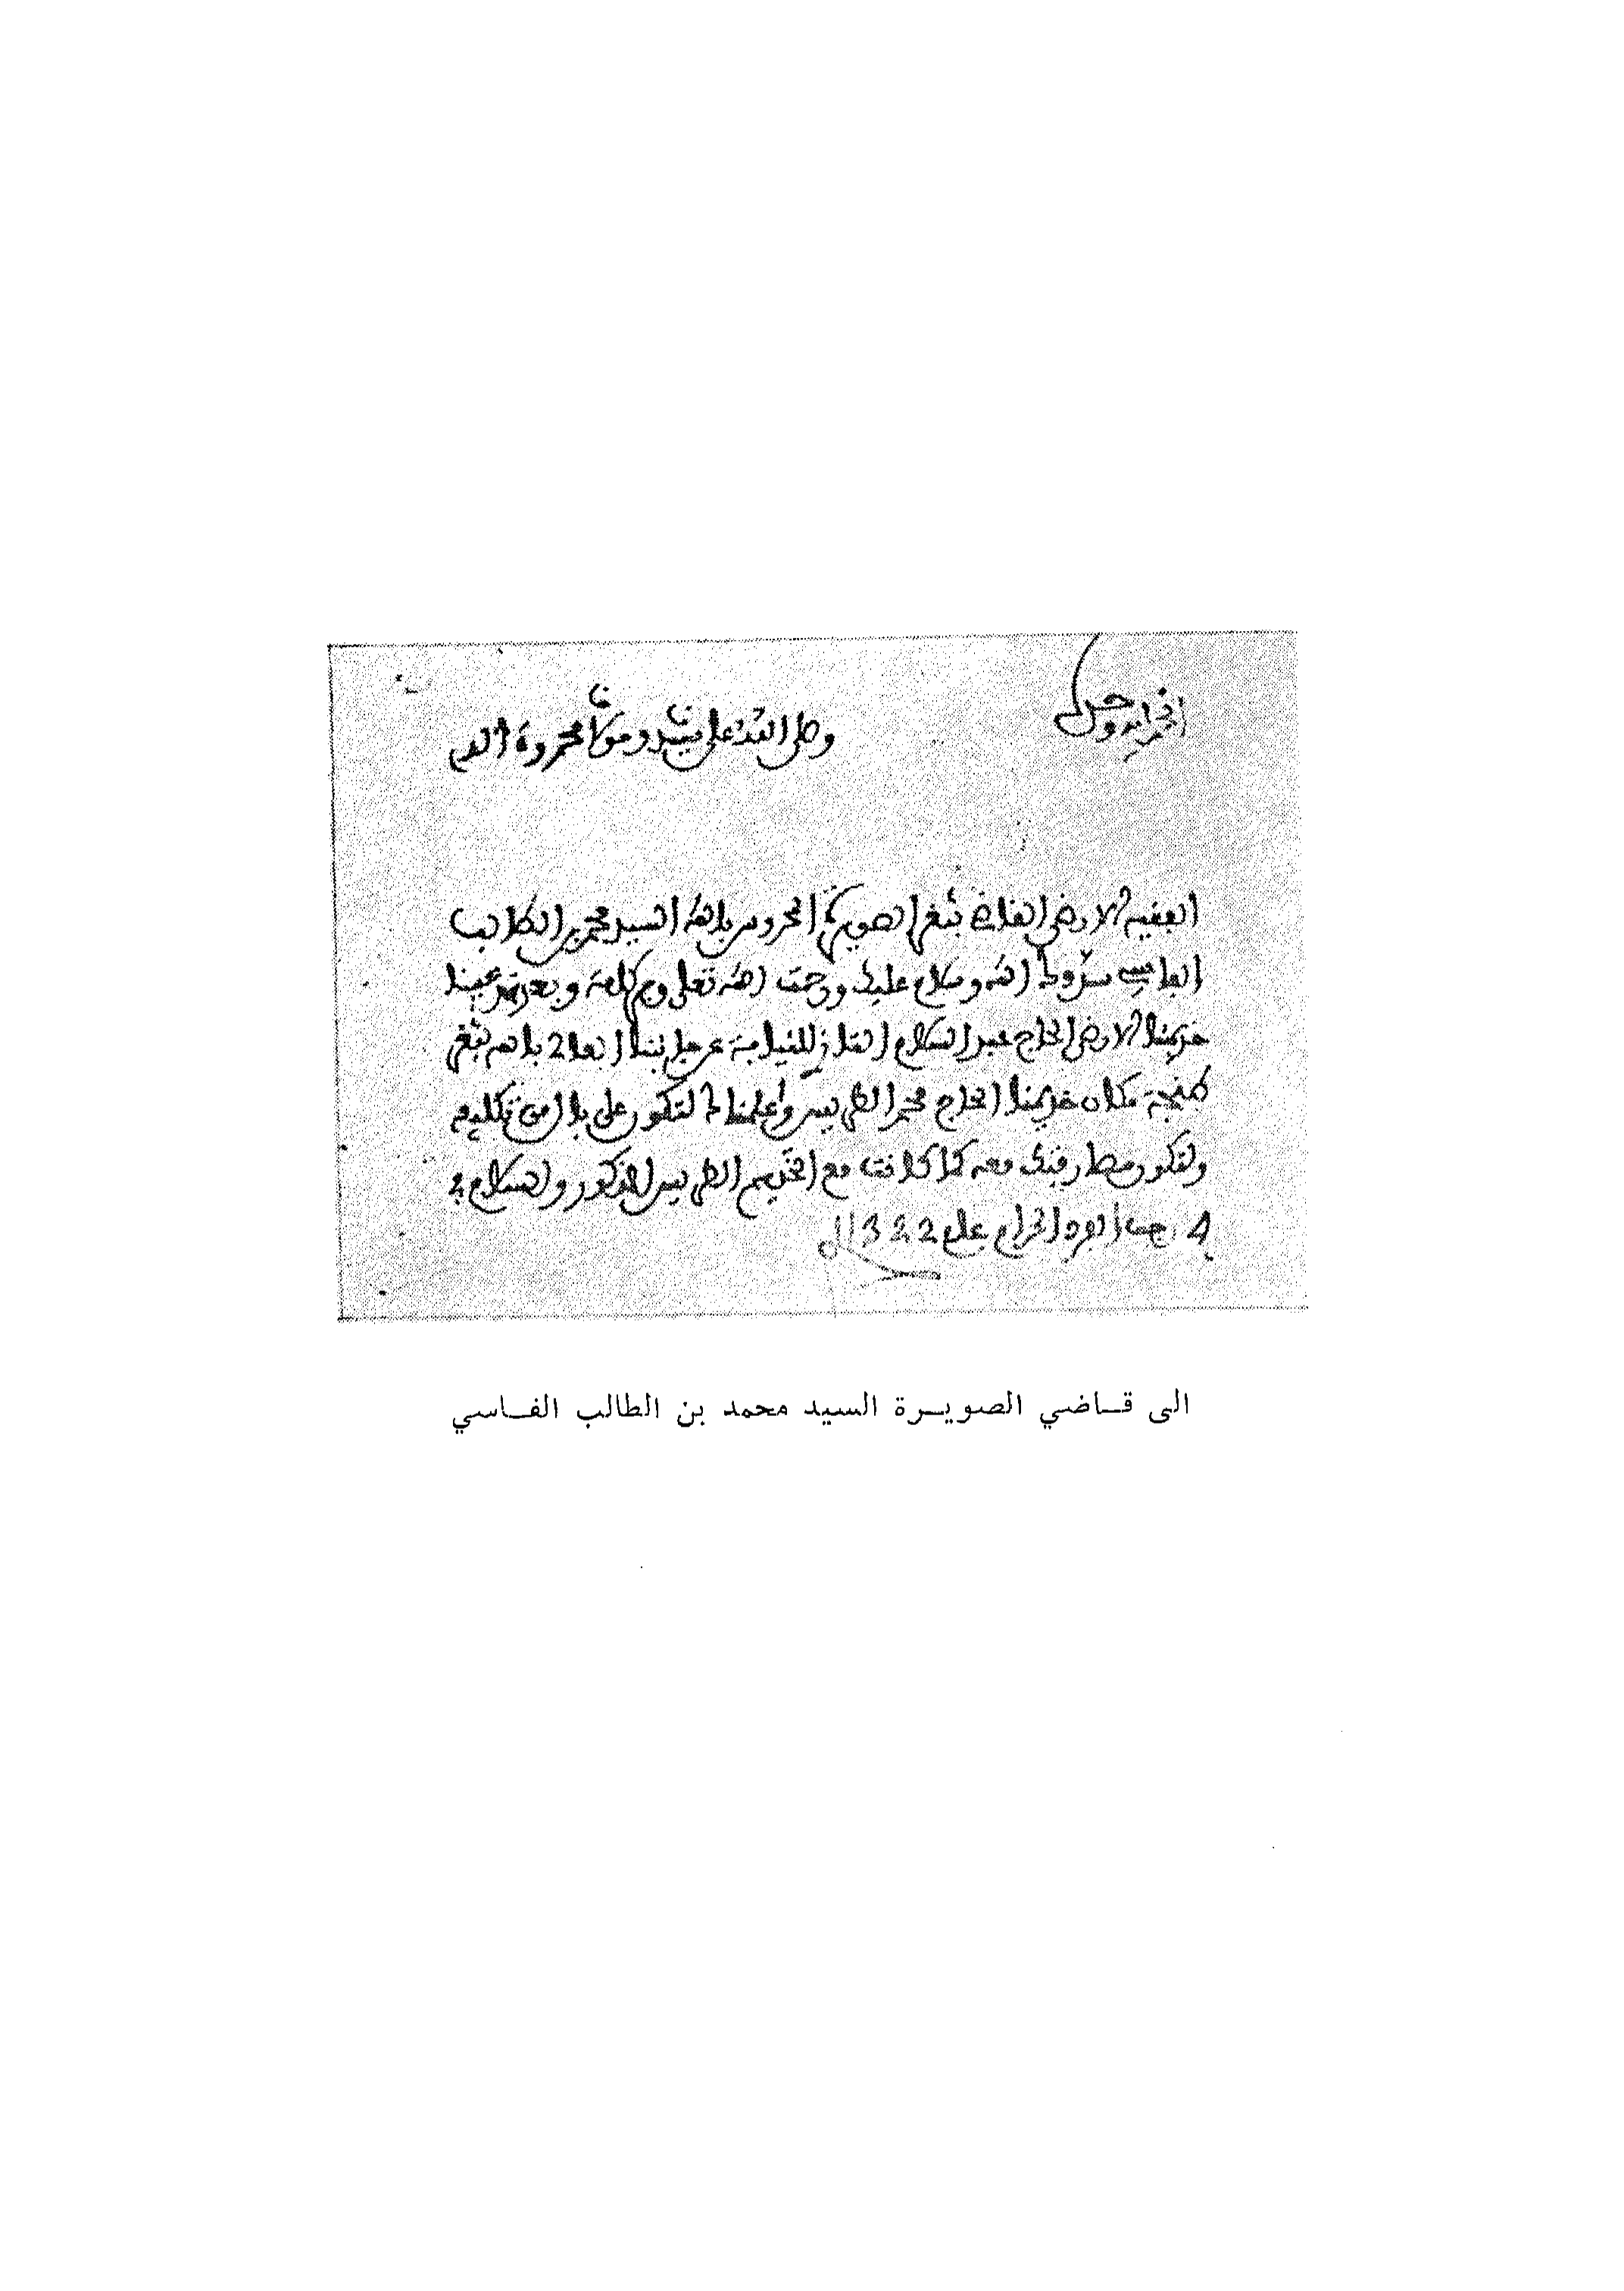 الحمد لله وحده
وصلى الله على سيدنا ومولانا محمد وءاله
الفقيه الارضى القاضي بثغر الصويرة المحروس بالله السيد محمد بن الطالب
الفاسي سددك الله وسلام عليك ورحمت الله تعلى وبركاته وبعد فقد عينا
خديمنا الارضى الحاج عبد السلام التازي للنيابة عن جانبنا العالي بالله بثغر
طنجة مكان خديمنا الحاج محمد الطريس وأعلمناك لتكون على بال من تكليفه
ولتكون مخابرتك معه كما كانت مع الخديم الطريس المذكور والسلام في
رجب الفرد الحرام عام 1322
الى قاضي الصويرة السيد محمد بن الطالب الفاسي